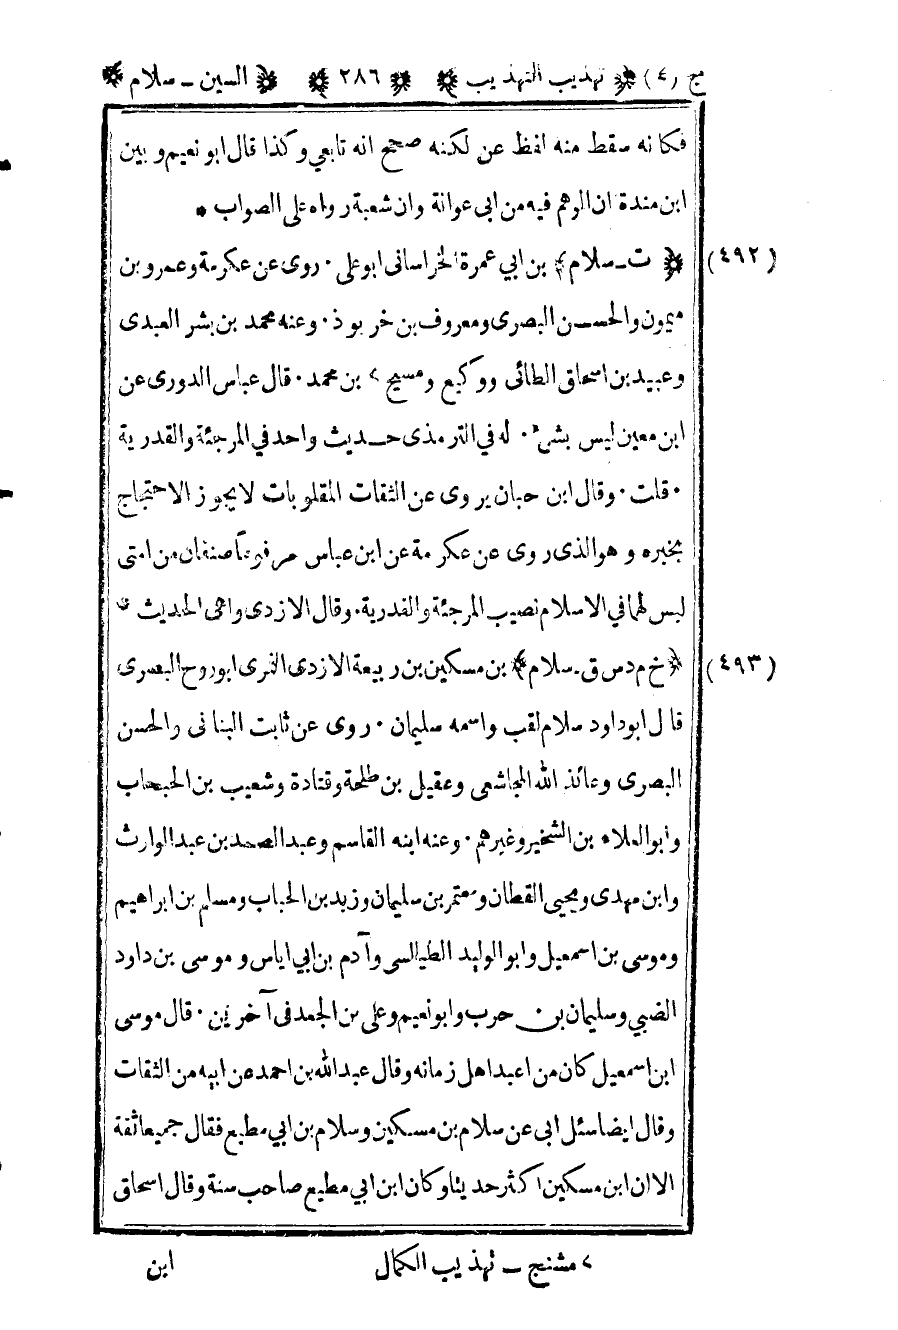 ج (٤) تهذيب التهذيب ٢٨٦ السين ـ سلام
فكانه سقط منه لفظ عن لكنه صحح انه تابعي وكذا قال ابو نعيم وبين
ابن مندة ان الوهم فيه من ابى عوانة وان شعبة رواه على الصواب *
(٤٩٢) ﴿ ت ـ سلام ﴾ بن ابي عمرة الخراسانى ابو على ٠ روى عن عكرمة وعمرو بن
ميمون والحسن البصرى ومعروف بن خربوذ ٠ وعنه محمد بن بشر العبدى
وعبيد بن اسحاق الطائى ووكيع ومسيح ٧ بن محمد ٠ قال عباس الدورى عن
ابن معين ليس بشئ ٠ له في الترمذى حديث واحد في المرجئة والقدرية
٠ قلت ٠ وقال ابن حبان يروى عن الثقات المقلوبات لا يجوز الاحتجاج
بخبره وهو الذى روى عن عكرمة عن ابن عباس مرفوعاً صنفان من امتى
ليس لهما في الاسلام نصيب المرجئة والقدرية ٠ وقال الازدى واهى الحديث *
(٤٩٣) ﴿ خ م د س ق ـ سلام ﴾ بن مسكين بن ربيعة الازدى النمرى ابو روح البصرى
قال ابو داود سلام لقب واسمه سليمان ٠ روى عن ثابت البنانى والحسن
البصرى وعائذ الله المجاشعى وعقيل بن طلحة وقتادة وشعيب بن الحبحاب
وابو العلاء بن الشخير وغيرهم ٠ وعنه ابنه القاسم وعبد الصمد بن عبد الوارث
وابن مهدى ويحيى القطان ومعتمر بن سليمان وزيد بن الحباب ومسلم بن ابراهيم
وموسى بن اسمعيل وابو الوليد الطيالسى وآدم بن ابي اياس وموسى بن داود
الضبي وسليمان بن ٠ حرب وابو نعيم وعلى بن الجعد فى آخرين ٠ قال موسى
ابن اسمعيل كان من اعبد اهل زمانه وقال عبدالله بن احمد عن ابيه من الثقات
وقال ايضا سئل ابى عن سلام بن مسكين وسلام بن ابي مطيع فقال جميعا ثقة
الا ان ابن مسكين اكثر حديثا وكان ابن ابي مطيع صاحب سنة وقال اسحاق
٧ مشنج ـ تهذيب الكمال ابن